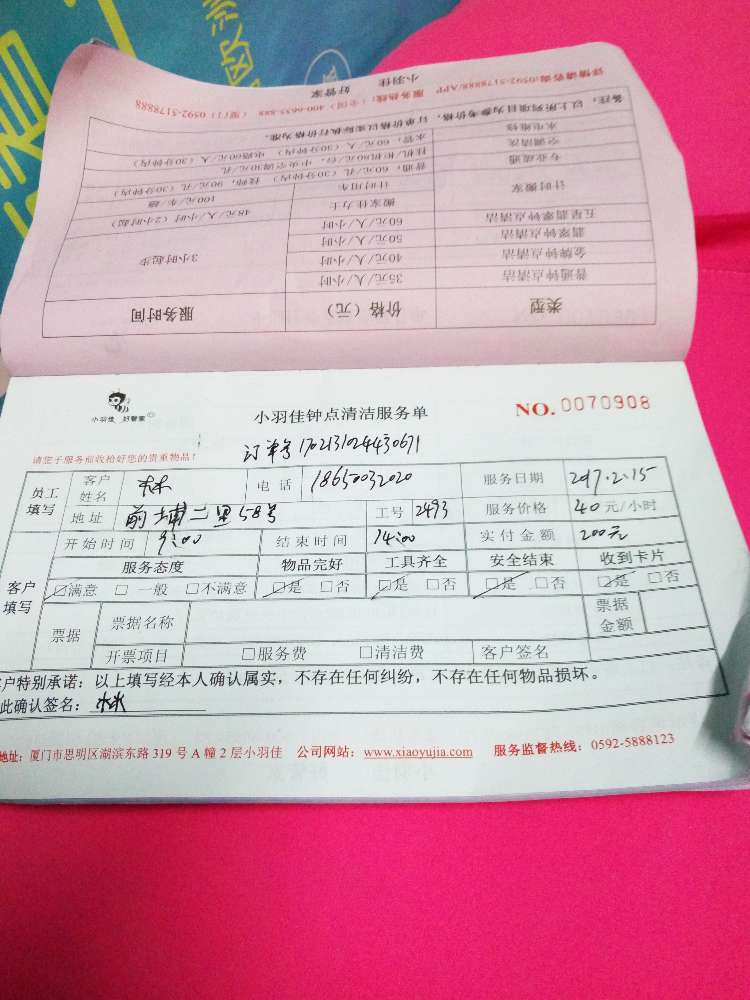 详情请咨询0592-5178888/APP 服务热线:(全国)400-6635-888 (厦门)0592-5178888
小羽佳 好管家
类型 价格(元) 服务时间
普通钟点清洁 35元/人/小时 3小时起步
金牌钟点清洁 40元/人/小时
翡翠钟点清洁 50元/人/小时
五星翡翠钟点清洁 60元/人/小时
计时搬家 搬家佳力士 48元/人/小时(2小时起)
计时用车 100元/车/趟
专业疏通 普通,60元/孔(30分钟内) 技师,90元/孔(30分钟内)
空调清洗 挂机/柜机80元/台,中央空调30元/孔
水电维修 水管,60元/人(30分钟内) 电路60元/人(30分钟内)
备注:以上所列项目为参考价格,订单价格以实际执行价格为准。
小羽佳 好管家
小羽佳钟点清洁服务单
NO. 0070908
请您于服务前收拾好您的贵重物品!
订单号 1702131024430671
员工填写 客户姓名 林 电话 18650032020 服务日期 2017.2.15
地址 前埔二里58号 工号 2493 服务价格 40元/小时
开始时间 9:00 结束时间 14:00 实付金额 200元
客户填写 服务态度 物品完好 工具齐全 安全结束 收到卡片
☑满意 □一般 □不满意 ☑是 □否 ☑是 □否 ☑是 □否 ☑是 □否
票据 票据名称 票据金额
开票项目 □服务费 □清洁费 客户签名
户特别承诺:以上填写经本人确认属实,不存在任何纠纷,不存在任何物品损坏。
此确认签名: 林
地址:厦门市思明区湖滨东路 319 号 A 幢 2 层小羽佳 公司网站:www.xiaoyujia.com 服务监督热线:0592-5888123